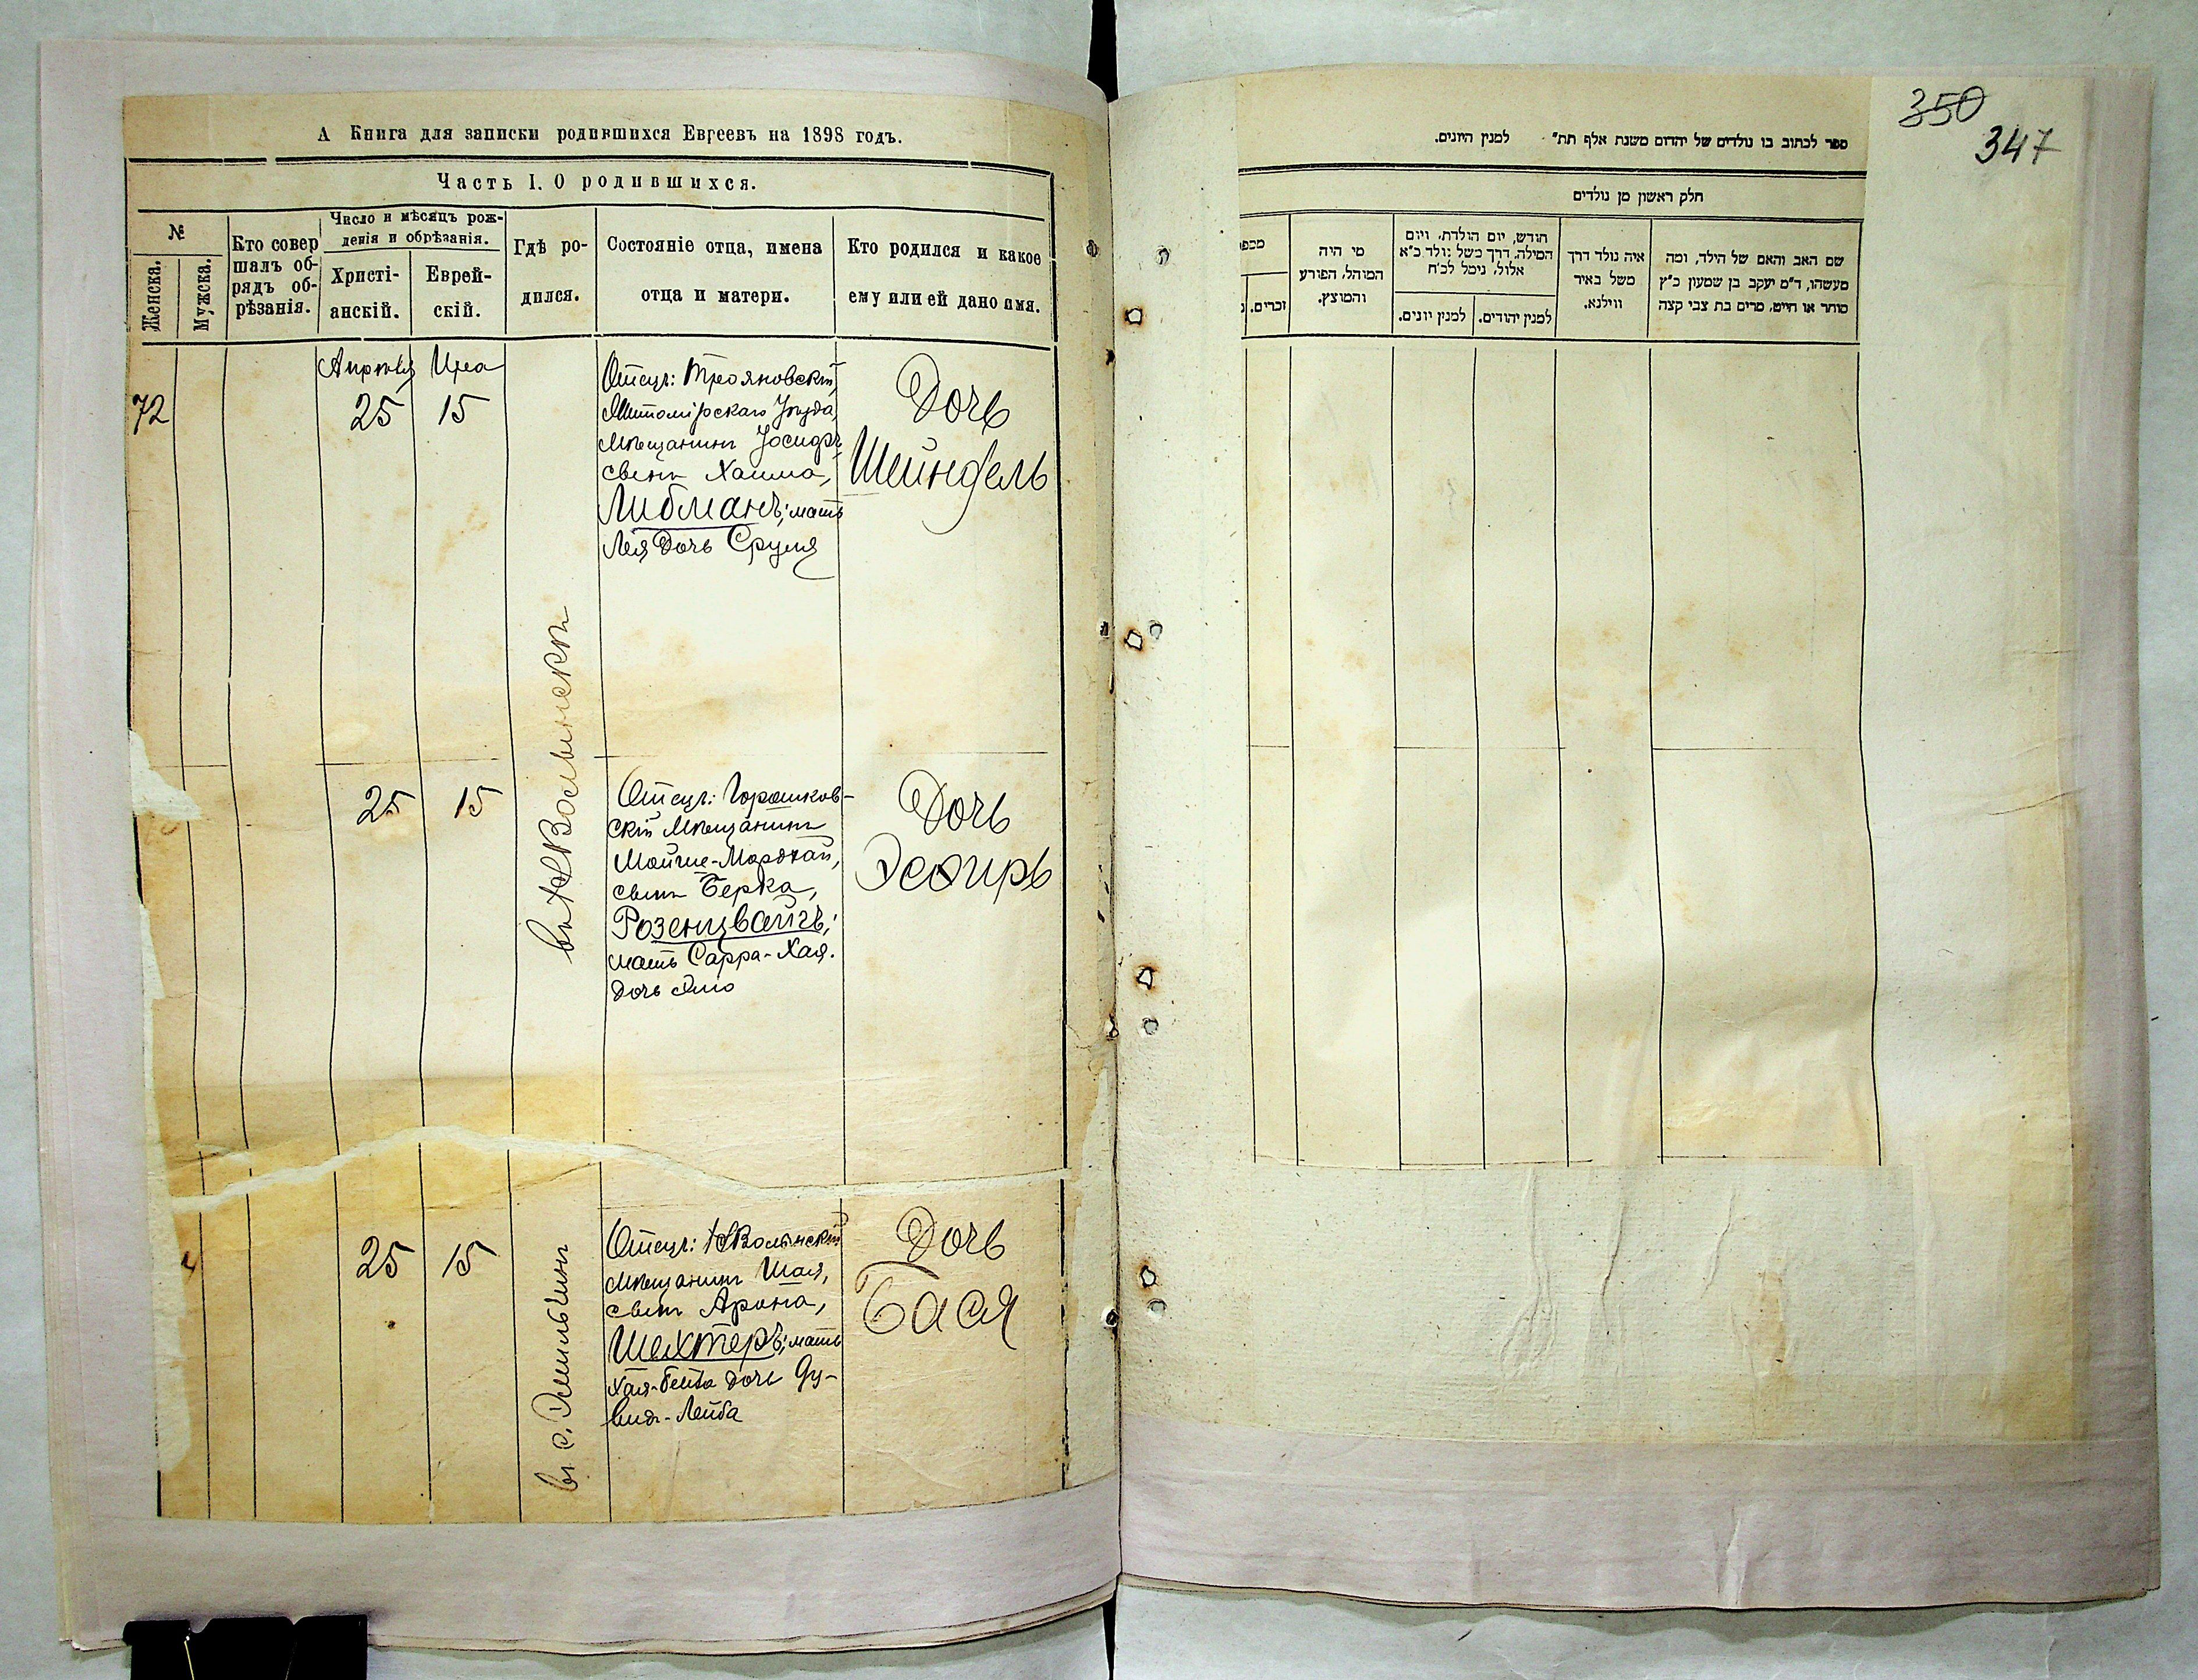 А Книга для записки родившихся Евреевъ на 1898 годъ.
Часть I. О родившихся.
№
Женска.
Мужска.
Кто совер
шалъ об-
рядъ об-
рѣзанія.
Число и мѣсяцъ рож-
денія и обрѣзанія.
Христі-
анскій.
Еврей-
скій.
Гдѣ ро-
дился.
Состояніе отца, имена
отца и матери.
Кто родился и какое
ему или ей дано имя.
72
Апрѣля
25
Ияра
15
Отецъ: Трояновскій,
Житомірскаго Уѣзда,
мѣщанинъ Іосифъ,
сынъ Хаима,
Либманъ; мать
Лея дочь Сруля
Дочь
Шейндель
въ НВолынскѣ
25
15
Отецъ: Горошков-
скій мѣщанинъ
Мойше-Мордхай,
сынъ Берка,
Розенцвайгъ;
мать Сарра-Хая.
дочь
Дочь
Эсѳирь
4
25
15
въ с. Эмильчинъ
Отецъ: НВолынскій
мѣщанинъ Шая,
сынъ Арона,
Шехтеръ; мать
Хая-Бейла дочь Ду-
видъ-Лейба
Дочь
Бася
350
347
ספר לכתוב בו נולדים של יהדום משנת אלף תת״ למנין היונים.
חלק ראשון מן נולדים
שם האב והאם של הילד, ומה
מעשהו, ד״מ יעקב בן שמעון כ״ץ
סוחר או חייט, מרים בת צבי קצה
איה נולד דרך
משל באיר
ווילנא.
חודש, יום הולדת, ויום
המילה, דרך משל נולד כ״א
אלול, נימל לכ״ח
למנין יהודים.
למנין יונים.
מי היה
המוהל, הפורע
והמוצץ.
מספ
זכרים.